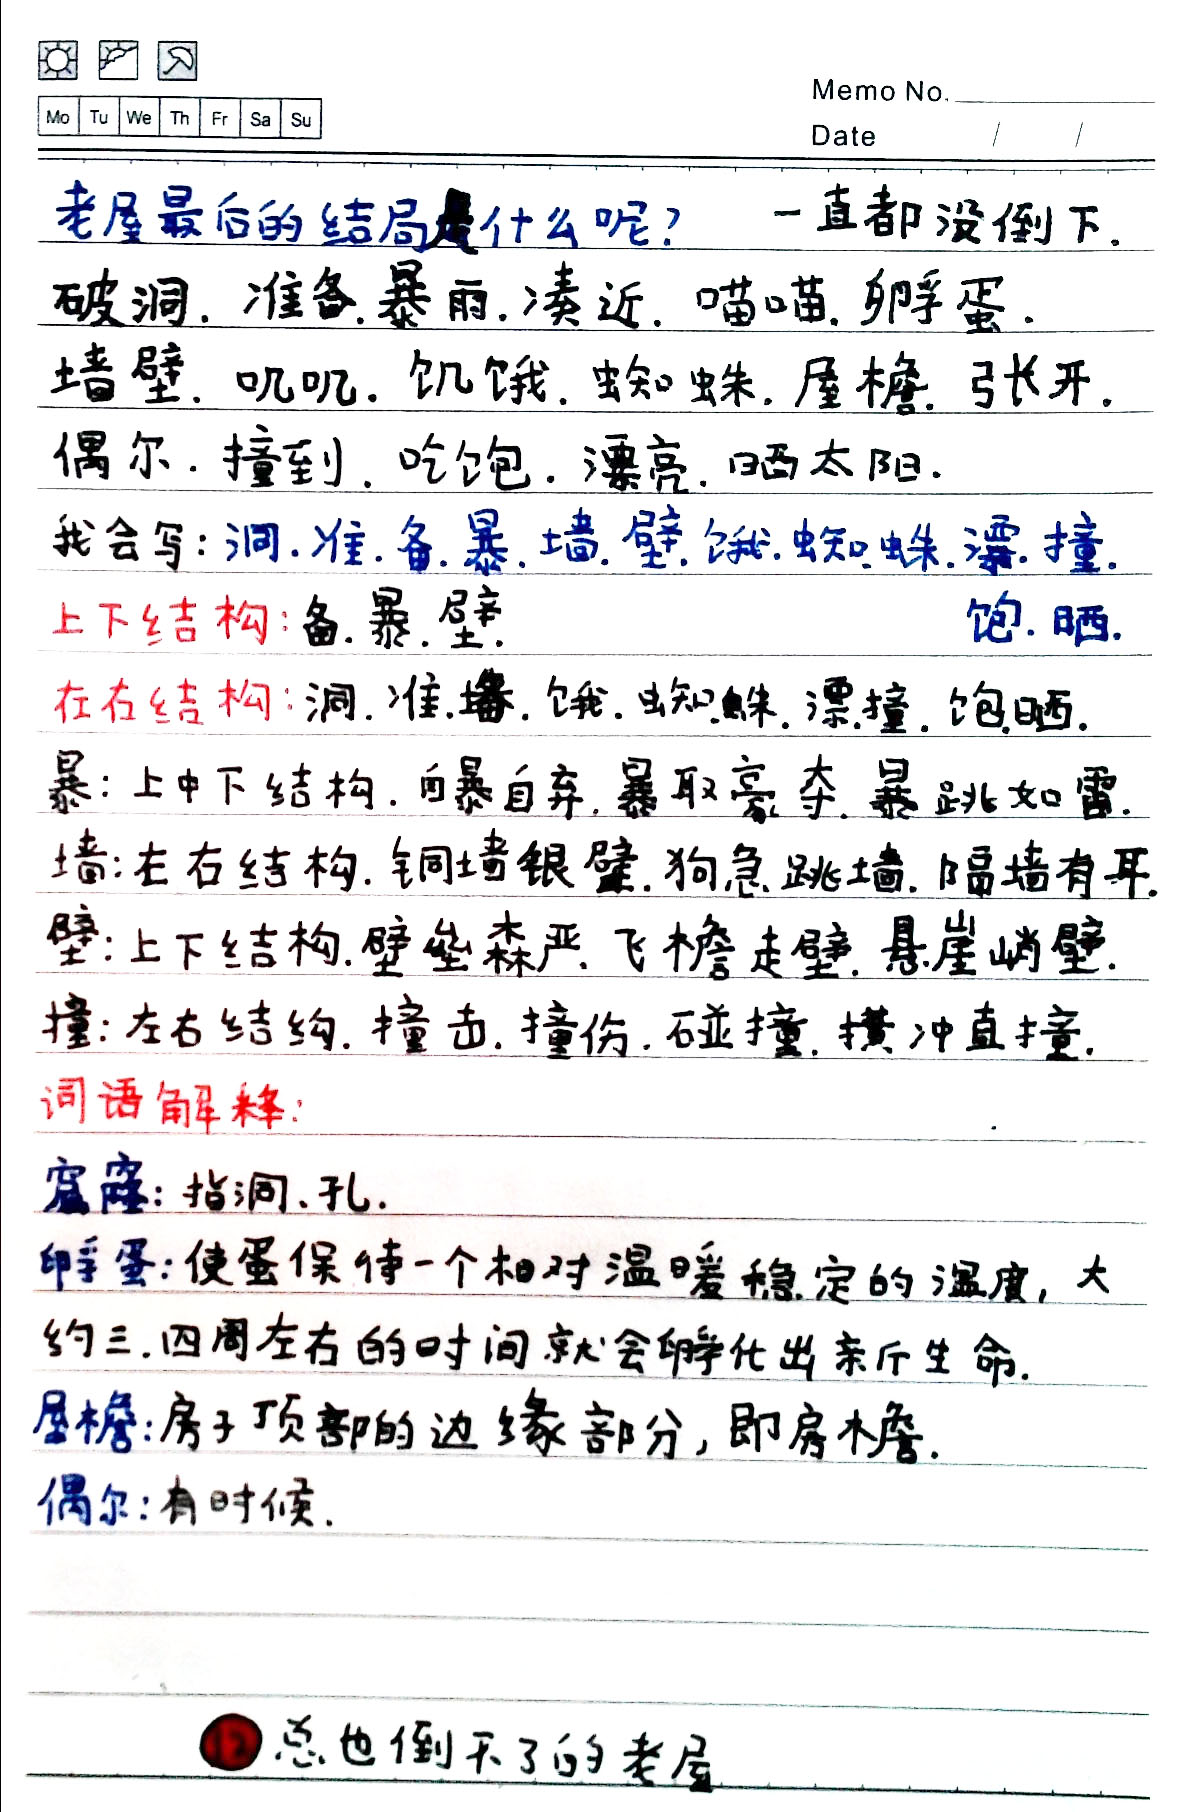 Memo No.
Mo Tu We Th Fr Sa Su
Date / /
老屋最后的结局是什么呢? 一直都没倒下.
破洞. 准备. 暴雨. 凑近. 喵喵. 孵蛋.
墙壁. 叽叽. 饥饿. 蜘蛛. 屋檐. 张开.
偶尔. 撞到. 吃饱. 漂亮. 晒太阳.
我会写: 洞. 准. 备. 暴. 墙. 壁. 饿. 蜘. 蛛. 漂. 撞.
饱. 晒.
上下结构: 备. 暴. 壁.
在右结构: 洞. 准. 墙. 饿. 蜘. 蛛. 漂. 撞. 饱. 晒.
暴: 上中下结构. 自暴自弃. 暴取豪夺. 暴跳如雷.
墙: 左右结构. 铜墙银壁. 狗急跳墙. 隔墙有耳.
壁: 上下结构. 壁垒森严. 飞檐走壁. 悬崖峭壁.
撞: 左右结构. 撞击. 撞伤. 碰撞. 横冲直撞.
词语解释:
窟窿: 指洞、孔.
孵蛋: 使蛋保持一个相对温暖稳定的温度, 大
约三. 四周左右的时间就会孵化出新生命.
屋檐: 房子顶部的边缘部分, 即房檐.
偶尔: 有时候.
12 总也倒不了的老屋